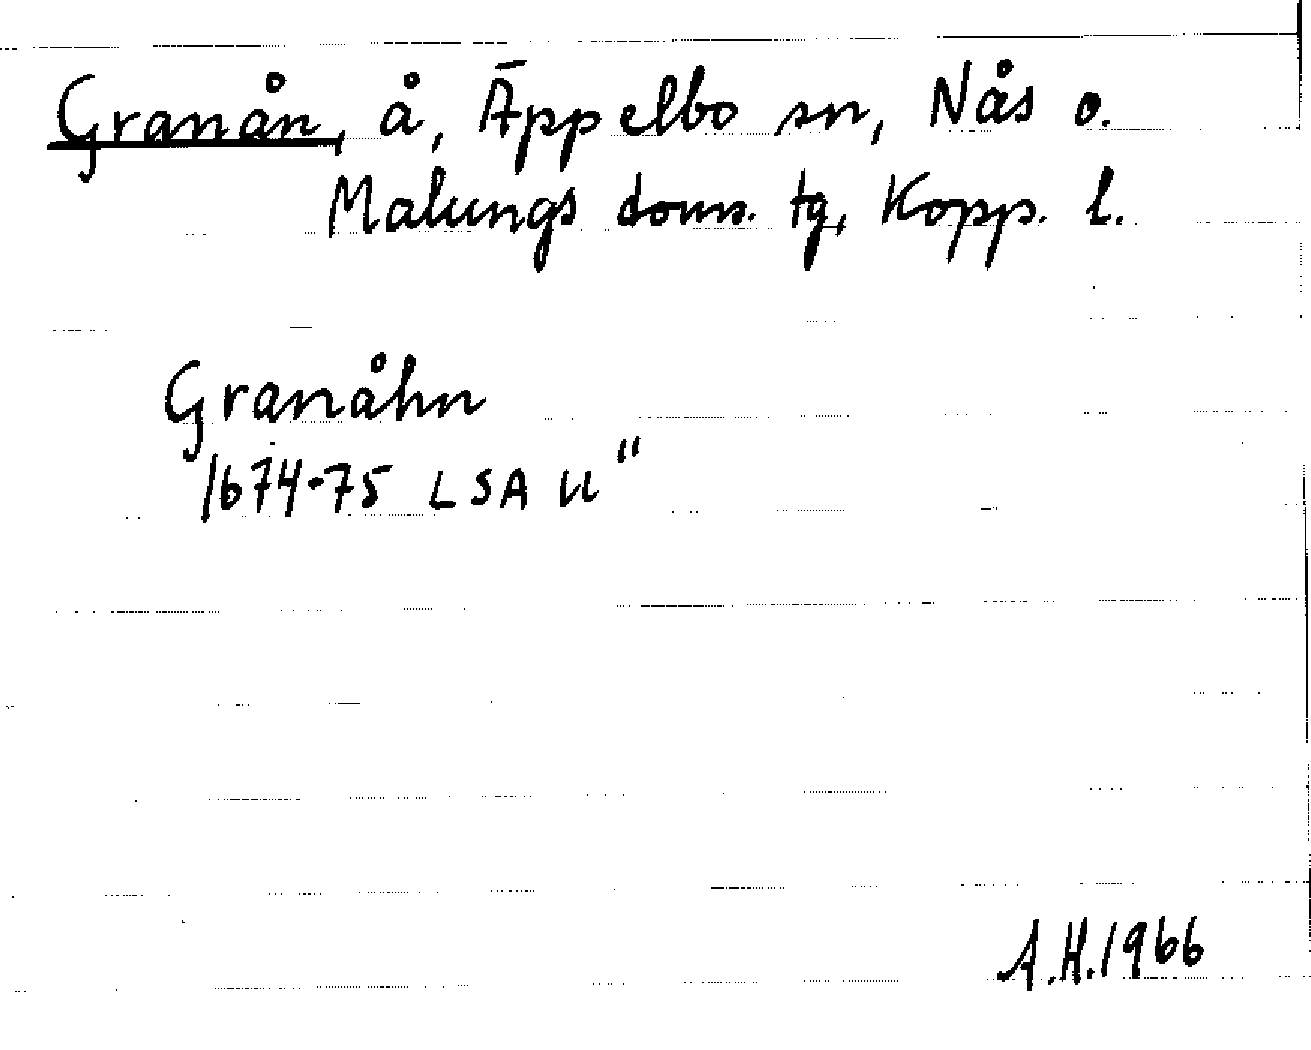 Granån, å, Äppelbo sn, Nås o.
Malungs doms. tg, Kopp. l.
Granåhn
1674-75 LSA U"
A.H.1966